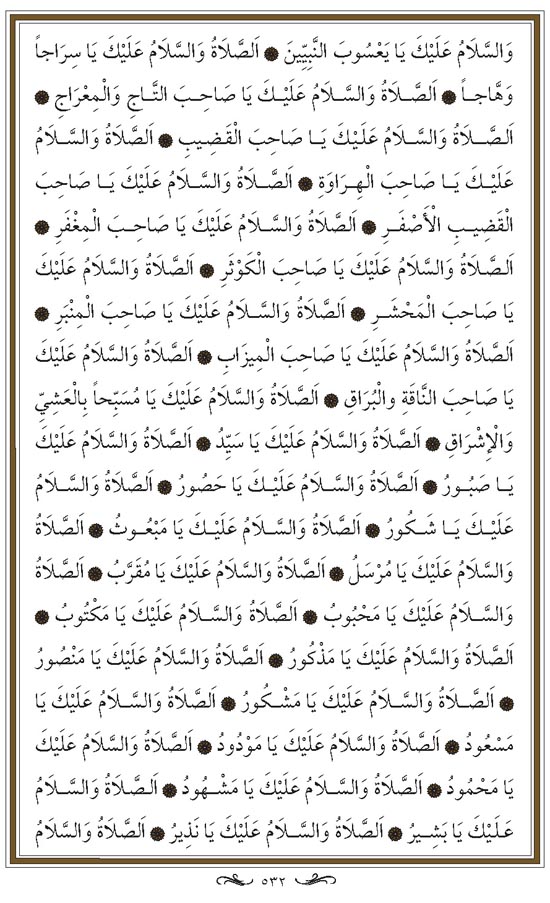 وَالسَّلَامُ عَلَيْكَ يَا يَعْسُوبَ النَّبِيِّينَ ۞ اَلصَّلَاةُ وَالسَّلَامُ عَلَيْكَ يَا سِرَاجاً
وَهَّاجاً ۞ اَلصَّلَاةُ وَالسَّلَامُ عَلَيْكَ يَا صَاحِبَ التَّاجِ وَالْمِعْرَاجِ ۞
اَلصَّلَاةُ وَالسَّلَامُ عَلَيْكَ يَا صَاحِبَ الْقَضِيبِ ۞ اَلصَّلَاةُ وَالسَّلَامُ
عَلَيْكَ يَا صَاحِبَ الْهِرَاوَةِ ۞ اَلصَّلَاةُ وَالسَّلَامُ عَلَيْكَ يَا صَاحِبَ
الْقَضِيبِ الْأَصْفَرِ ۞ اَلصَّلَاةُ وَالسَّلَامُ عَلَيْكَ يَا صَاحِبَ الْمِغْفَرِ ۞
اَلصَّلَاةُ وَالسَّلَامُ عَلَيْكَ يَا صَاحِبَ الْكَوْثَرِ ۞ اَلصَّلَاةُ وَالسَّلَامُ عَلَيْكَ
يَا صَاحِبَ الْمَحْشَرِ ۞ اَلصَّلَاةُ وَالسَّلَامُ عَلَيْكَ يَا صَاحِبَ الْمِنْبَرِ ۞
اَلصَّلَاةُ وَالسَّلَامُ عَلَيْكَ يَا صَاحِبَ الْمِيزَابِ ۞ اَلصَّلَاةُ وَالسَّلَامُ عَلَيْكَ
يَا صَاحِبَ النَّاقَةِ والْبُرَاقِ ۞ اَلصَّلَاةُ وَالسَّلَامُ عَلَيْكَ يَا مُسَبِّحاً بِالْعَشِيِّ
وَالْإِشْرَاقِ ۞ اَلصَّلَاةُ وَالسَّلَامُ عَلَيْكَ يَا سَيِّدُ ۞ اَلصَّلَاةُ وَالسَّلَامُ عَلَيْكَ
يَا صَبُورُ ۞ اَلصَّلَاةُ وَالسَّلَامُ عَلَيْكَ يَا حَصُورُ ۞ اَلصَّلَاةُ وَالسَّلَامُ
عَلَيْكَ يَا شَكُورُ ۞ اَلصَّلَاةُ وَالسَّلَامُ عَلَيْكَ يَا مَبْعُوثُ ۞ اَلصَّلَاةُ
وَالسَّلَامُ عَلَيْكَ يَا مُرْسَلُ ۞ اَلصَّلَاةُ وَالسَّلَامُ عَلَيْكَ يَا مُقَرَّبُ ۞ اَلصَّلَاةُ
وَالسَّلَامُ عَلَيْكَ يَا مَحْبُوبُ ۞ اَلصَّلَاةُ وَالسَّلَامُ عَلَيْكَ يَا مَكْتُوبُ ۞
اَلصَّلَاةُ وَالسَّلَامُ عَلَيْكَ يَا مَذْكُورُ ۞ اَلصَّلَاةُ وَالسَّلَامُ عَلَيْكَ يَا مَنْصُورُ
۞ اَلصَّلَاةُ وَالسَّلَامُ عَلَيْكَ يَا مَشْكُورُ ۞ اَلصَّلَاةُ وَالسَّلَامُ عَلَيْكَ يَا
مَسْعُودُ ۞ اَلصَّلَاةُ وَالسَّلَامُ عَلَيْكَ يَا مَوْدُودُ ۞ اَلصَّلَاةُ وَالسَّلَامُ عَلَيْكَ
يَا مَحْمُودُ ۞ اَلصَّلَاةُ وَالسَّلَامُ عَلَيْكَ يَا مَشْهُودُ ۞ اَلصَّلَاةُ وَالسَّلَامُ
عَلَيْكَ يَا بَشِيرُ ۞ اَلصَّلَاةُ وَالسَّلَامُ عَلَيْكَ يَا نَذِيرُ ۞ اَلصَّلَاةُ وَالسَّلَامُ
٥٣٢